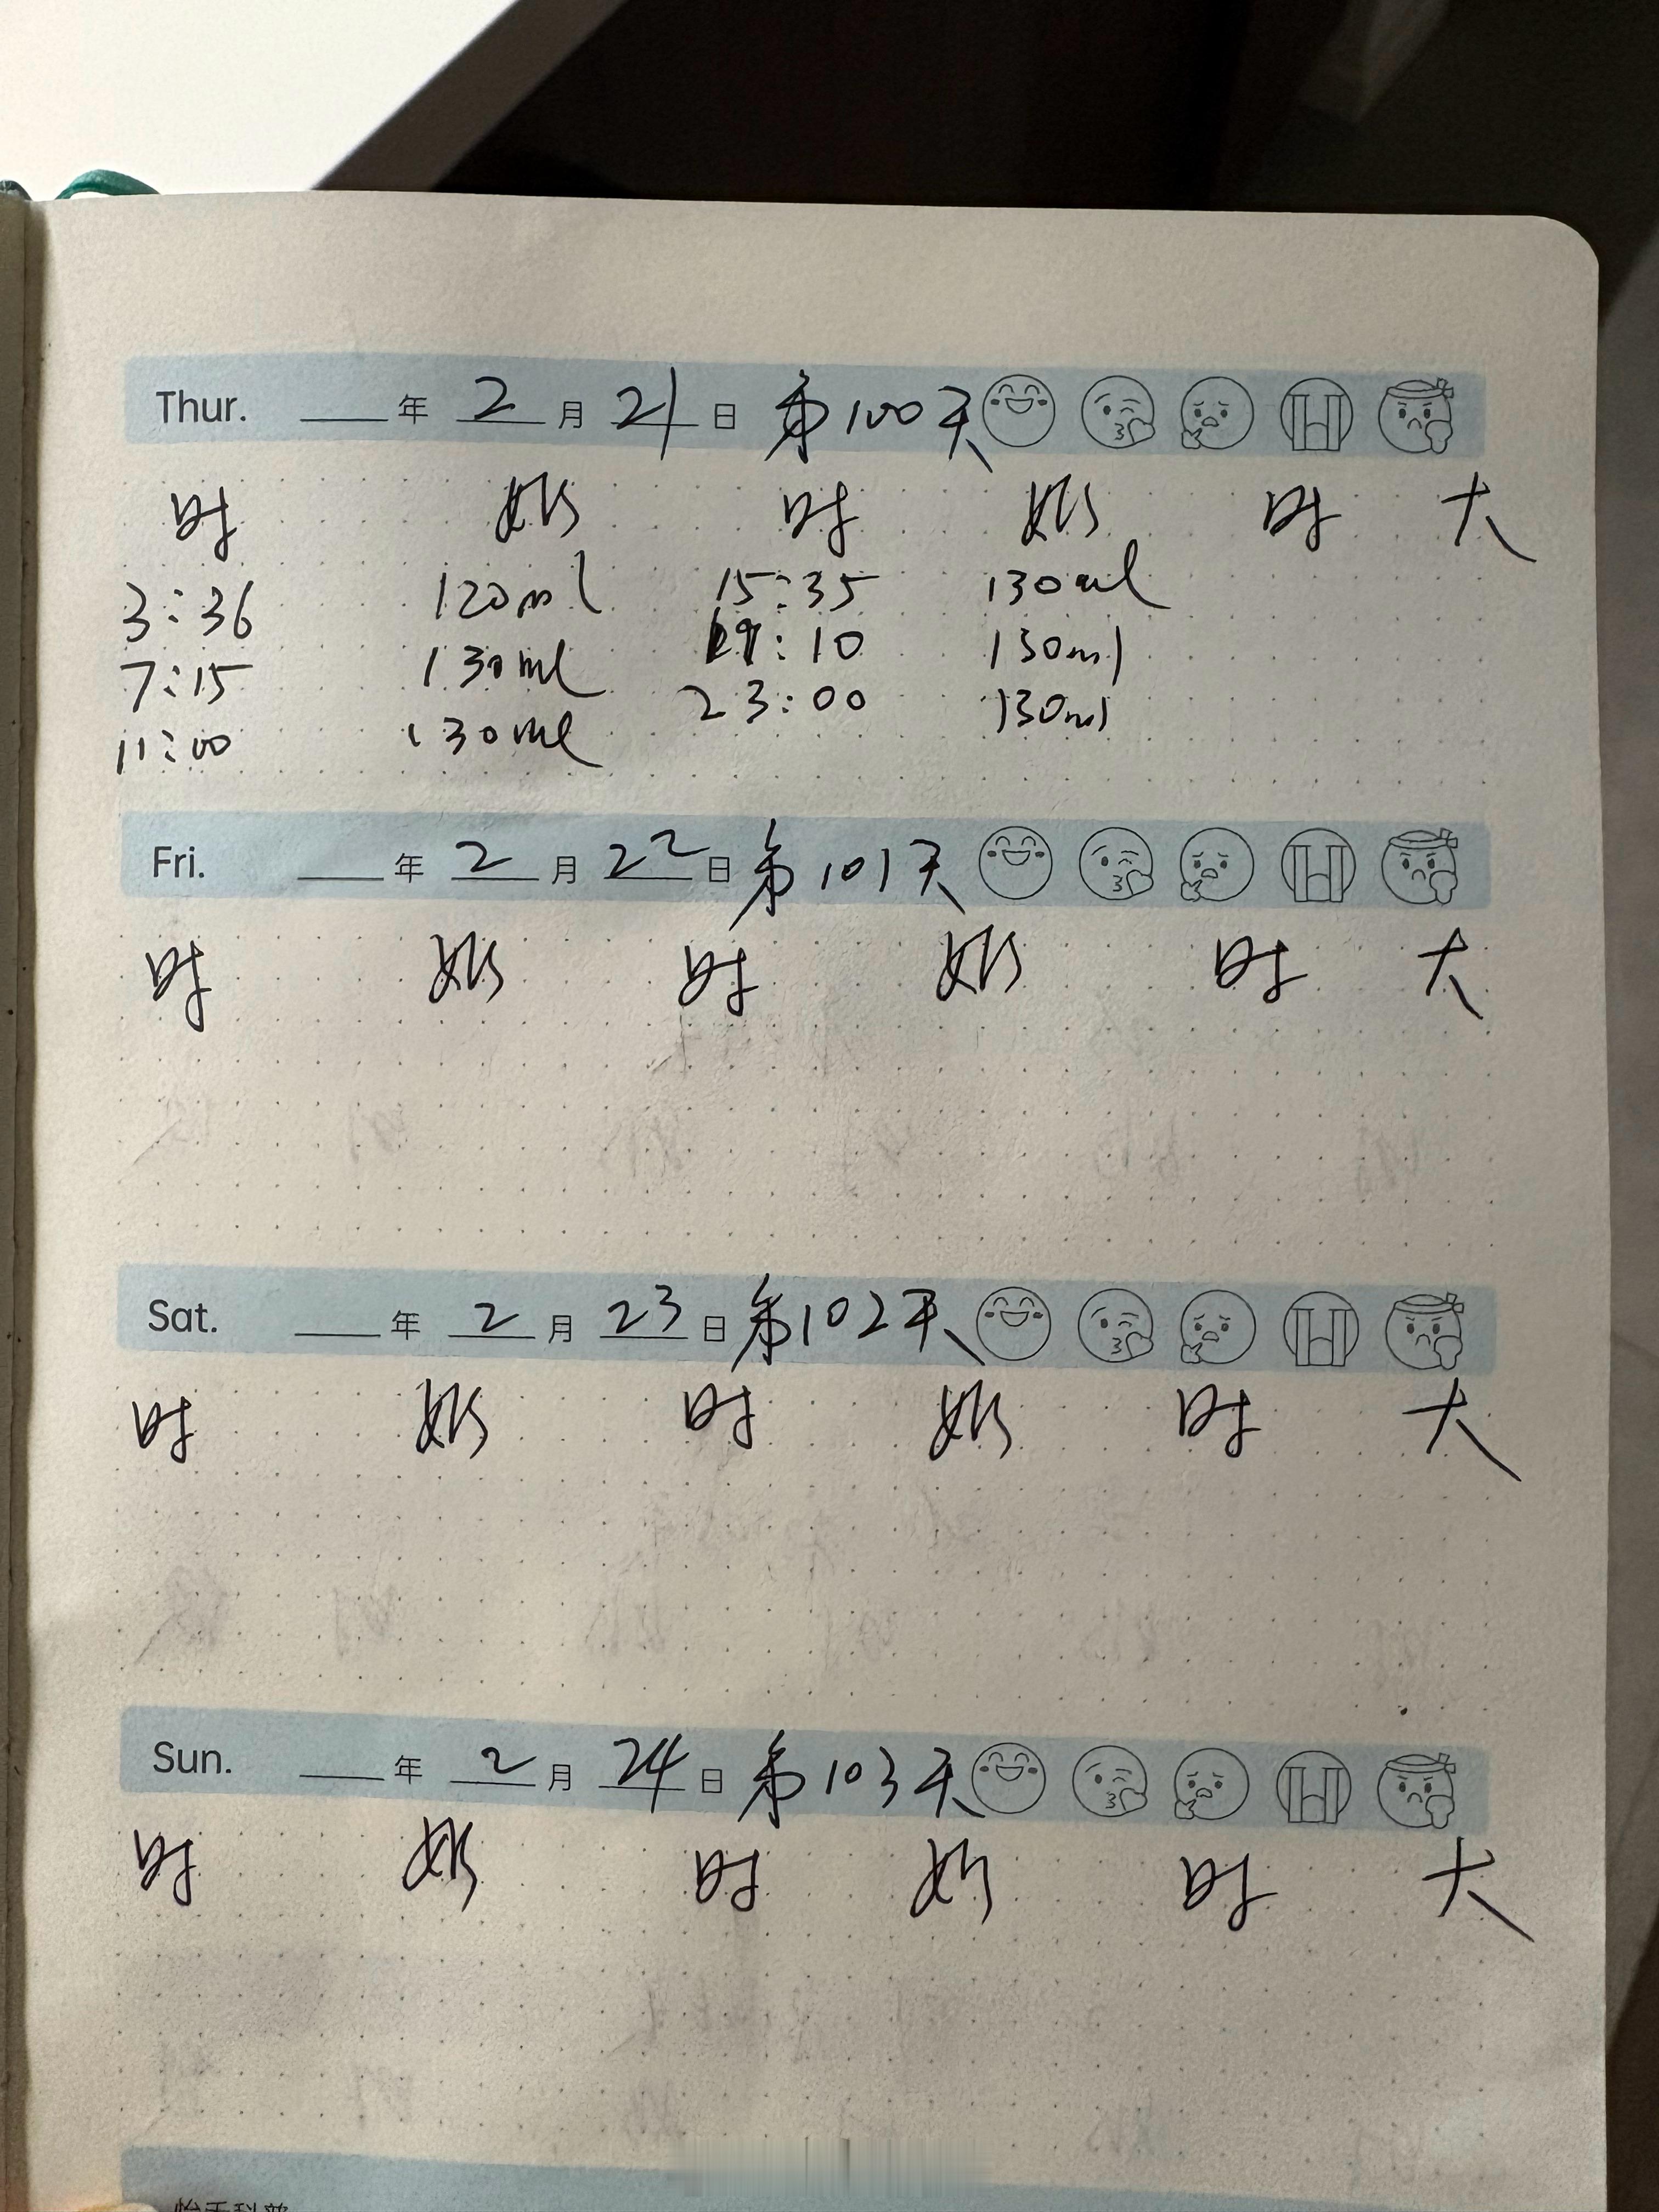 Thur. ____年 2 月 21 日 第100天
时 奶 时 奶 时 大
3:36 120ml 15:35 130ml
7:15 130ml 19:10 130ml
11:00 130ml 23:00 130ml
Fri. ____年 2 月 22 日 第101天
时 奶 时 奶 时 大
Sat. ____年 2 月 23 日 第102天
时 奶 时 奶 时 大
Sun. ____年 2 月 24 日 第103天
时 奶 时 奶 时 大